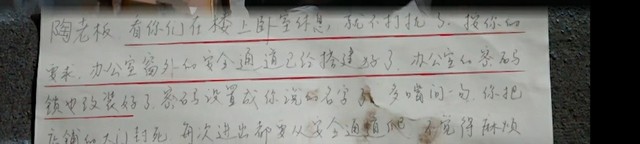 陶老板,看你们在楼上卧室休息,就不打扰了。按你的
要求,办公室窗外的安全通道已经搭建好了,办公室的密码
锁也改装好了,密码设置成你说的名字 多嘴问一句,你把
店铺的大门封死,每次进出都要从安全通道爬 不觉得麻烦